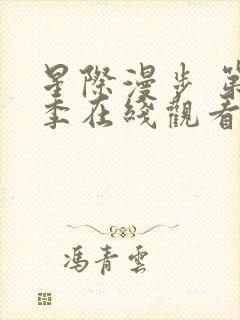 星際漫步 第
季在綫觀看
馮青雲